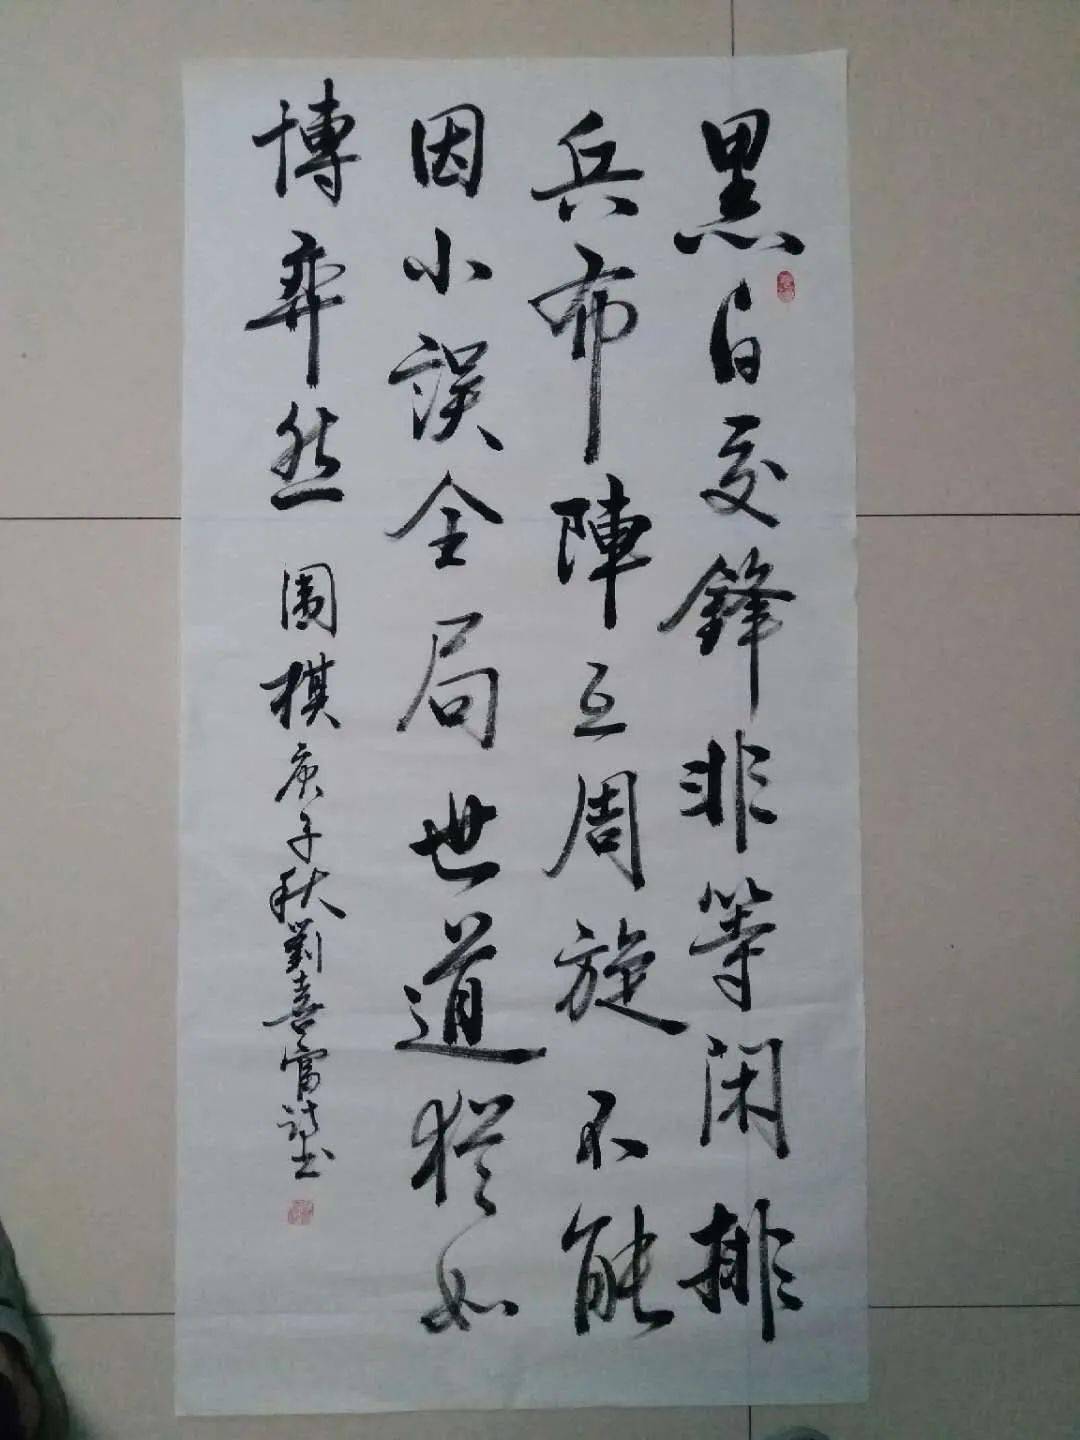 黑白交鋒非等閑排
兵布陣互周旋不能
因小誤全局世道猶如
博弈然 圍棋 庚子秋劉喜富詩書